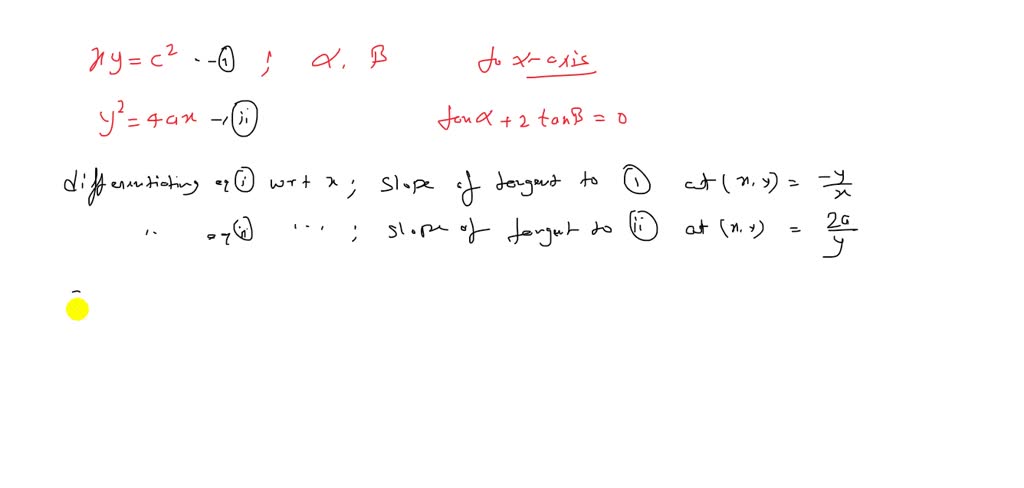 xy = c² --① ; α, β to x-axis
y² = 4ax -, ⅱ tanα + 2 tanβ = 0
differentiating eq ⓘ wrt x ; slope of tangent to ① at (x, y) = -y/x
,, eq ⅱ ... ; slope of tangent to ⅱ at (x, y) = 2a/y